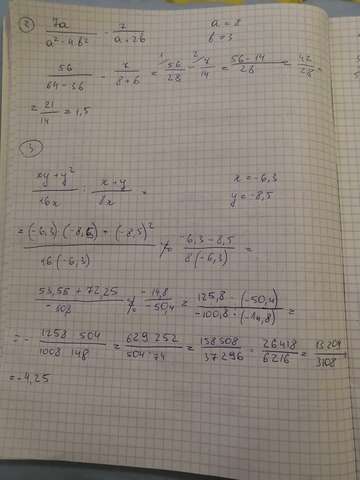 ② 7a / (a² - 4b²) - 7 / (a + 2b) a = 8
b = 3
56 / (64 - 36) - 7 / (8 + 6) = 56 / 28 - 7 / 14 = (56 - 14) / 28 = 42 / 28 =
= 21 / 14 = 1,5
③
(xy + y²) / 16x : (x + y) / 8x = x = -6,3
y = -8,5
= ((-6,3) · (-8,5) + (-8,5)²) / 16(-6,3) : (-6,3 - 8,5) / 8(-6,3) =
(53,55 + 72,25) / : -14,8 / -50,4 = 125,8 · (-50,4) / -100,8 · (-14,8) =
= - 1258 504 / 1008 148 = 629 252 / 504 · 74 = 158508 / 37296 = / 6216 = 13209 / 3108
= -4,25